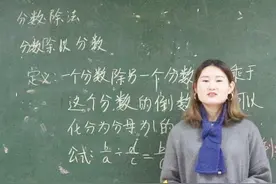 分数除法
分数除以分数
定义:一个分数除另一个分数 乘于
这个分数的倒数 可以
化分为分母为1的
公式: b/a ÷ d/c = b